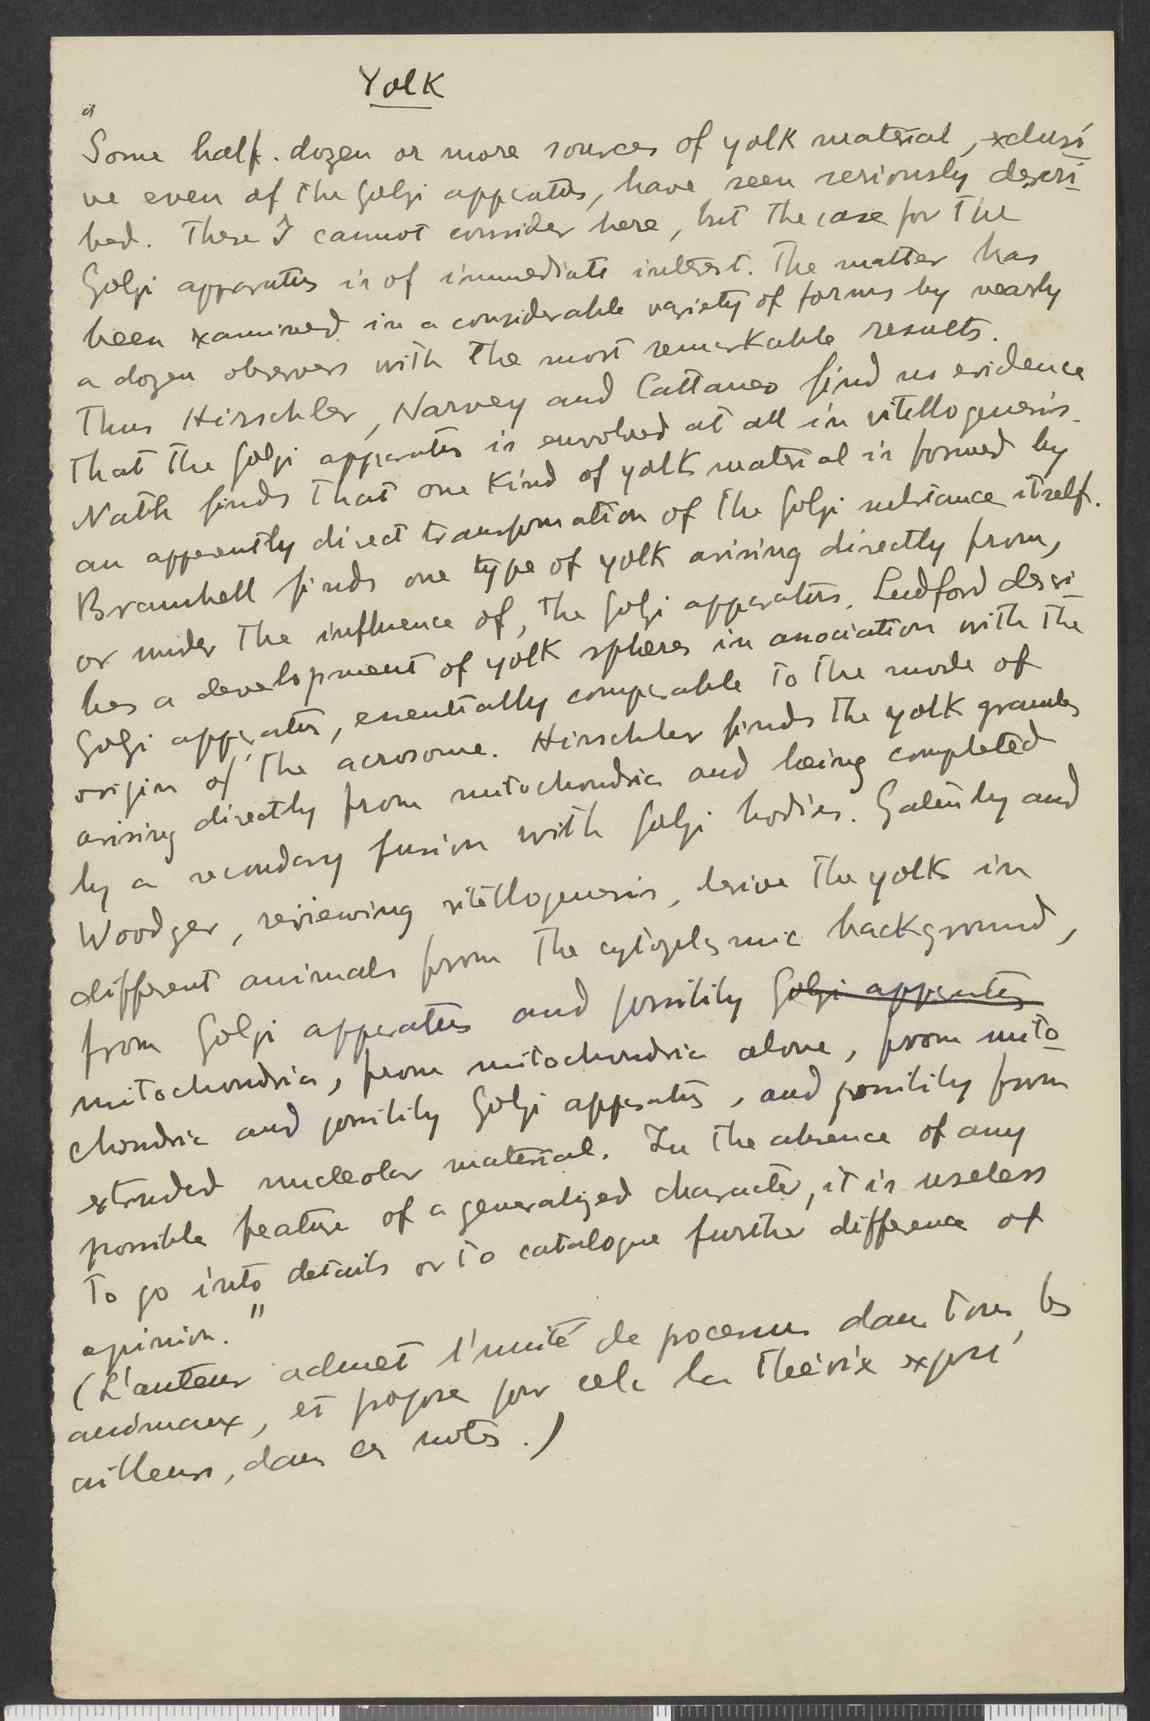 Yolk
"Some half-dozen or more sources of yolk material, exclusi
ve even of the Golgi appatus, have seen seriously descri
bed. These I cannot consider here, but the case for the
Golgi apparatus is of immediate interest. The matter has
been examined in a considerable variety of forms by nearly
a dozen observers with the most remarkable results.
Thus Hirschler, Narvey and Cattaneo find no evidence
that the Golgi apparatus is envolved at all in vitellogenesis.
Nath finds that one kind of yolk material is formed by
an apparently direct transformation of the Golgi substance itself.
Bramhell finds one type of yolk arising directly from,
or under the influence of, the Golgi apparatus. Ludford descri
bes a development of yolk spheres in association with the
Golgi apparatus, essentially comparable to the mode of
origin of the acrosome. Hirschler finds the yolk granules
arising directly from mitochondria and being completed
by a secondary fusion with Golgi bodies. Gatenby and
Woodger, reviewing vitellogenesis, derive the yolk in
different animals from the cytoplasmic background,
from Golgi apparatus and possibly Golgi apparatus
mitochondria, from mitochondria alone, from mito
chondria and possibly Golgi apparatus, and possibly from
extruded nucleolar material. In the absence of any
possible feature of a generalized character, it is useless
to go into details or to catalogue further difference of
opinion."
(L'auteur admet l'unité de pocessus dans tous les
animaux, et propose pour cela la théorie exposé
ailleurs, dans ces notes.)